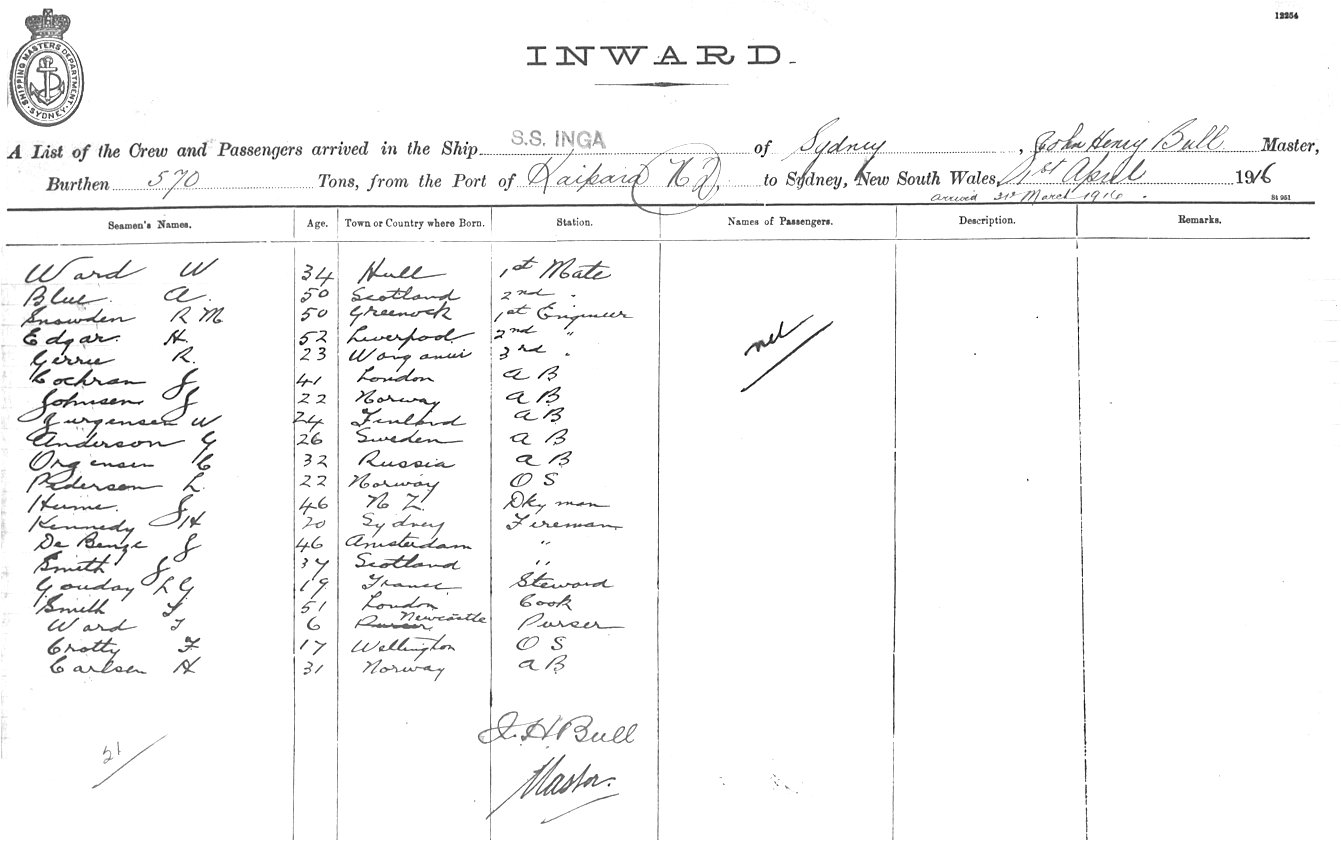 12254
SHIPPING MASTERS DEPARTMENT. SYDNEY
INWARD.
A List of the Crew and Passengers arrived in the Ship S.S. INGA of Sydney, John Henry Bull Master,
Burthen 570 Tons, from the Port of Kaipara NZ to Sydney, New South Wales, 1st April 1916
arrived 31st March 1916. St 951
Seamen's Names. Age. Town or Country where Born. Station. Names of Passengers. Description. Remarks.
Ward W 34 Hull 1st Mate
Blue. A. 50 Scotland 2nd "
Snowden R M 50 Greenock 1st Engineer
Edgar. H. 52 Liverpool 2nd "
Gerrie R. 23 Wanganui 3rd "
nil
Cochran J 41 London A B
Johnsen J 22 Norway A B
Jurgensen W 24 Finland A B
Anderson G 26 Sweden A B
Orgensen C 32 Russia A B
Pederson L. 22 Norway O S
Hume. J 46 N Z. Dkyman
Kennedy J H 20 Sydney Fireman
De Benze J 46 Amsterdam "
Smith J 37 Scotland "
Gouday L G 19 France Steward
Smith F 51 London Cook
Ward F 6 Purser Newcastle Purser
Crotty F. 17 Wellington O S
Carlsen H 31 Norway A B
J. H Bull
21
Master.